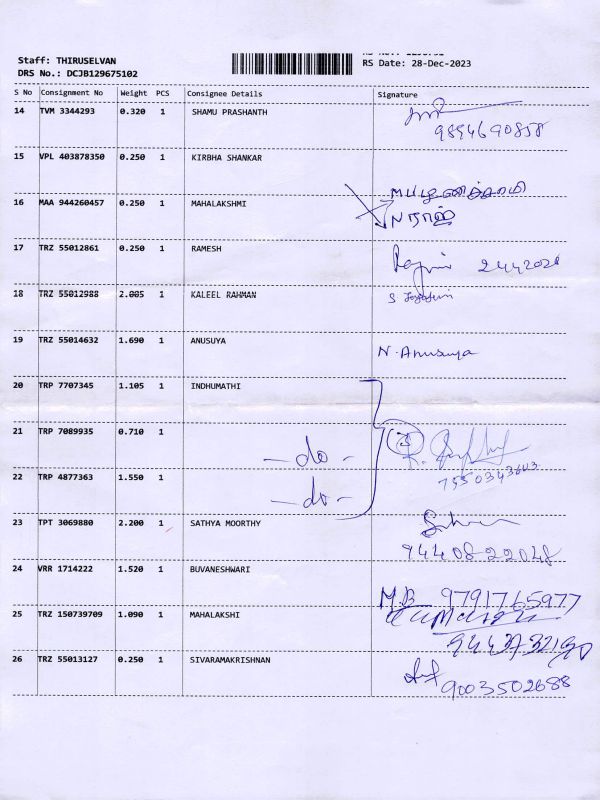 Staff: THIRUSELVAN
DRS No.: DCJB129675102
RS Date: 28-Dec-2023
S No Consignment No Weight PCS Consignee Details Signature
14 TVM 3344293 0.320 1 SHAMU PRASHANTH
9894690858
15 VPL 403878350 0.250 1 KIRBHA SHANKAR
16 MAA 944260457 0.250 1 MAHALAKSHMI
17 TRZ 55012861 0.250 1 RAMESH
18 TRZ 55012988 2.005 1 KALEEL RAHMAN
19 TRZ 55014632 1.690 1 ANUSUYA N. Anusuya
20 TRP 7707345 1.105 1 INDHUMATHI
21 TRP 7089935 0.710 1
- do -
7550343643
22 TRP 4877363 1.550 1
- do -
23 TPT 3069880 2.200 1 SATHYA MOORTHY
9440822048
24 VRR 1714222 1.520 1 BUVANESHWARI
M.B 9791765977
25 TRZ 150739709 1.090 1 MAHALAKSHI
26 TRZ 55013127 0.250 1 SIVARAMAKRISHNAN
9003502688